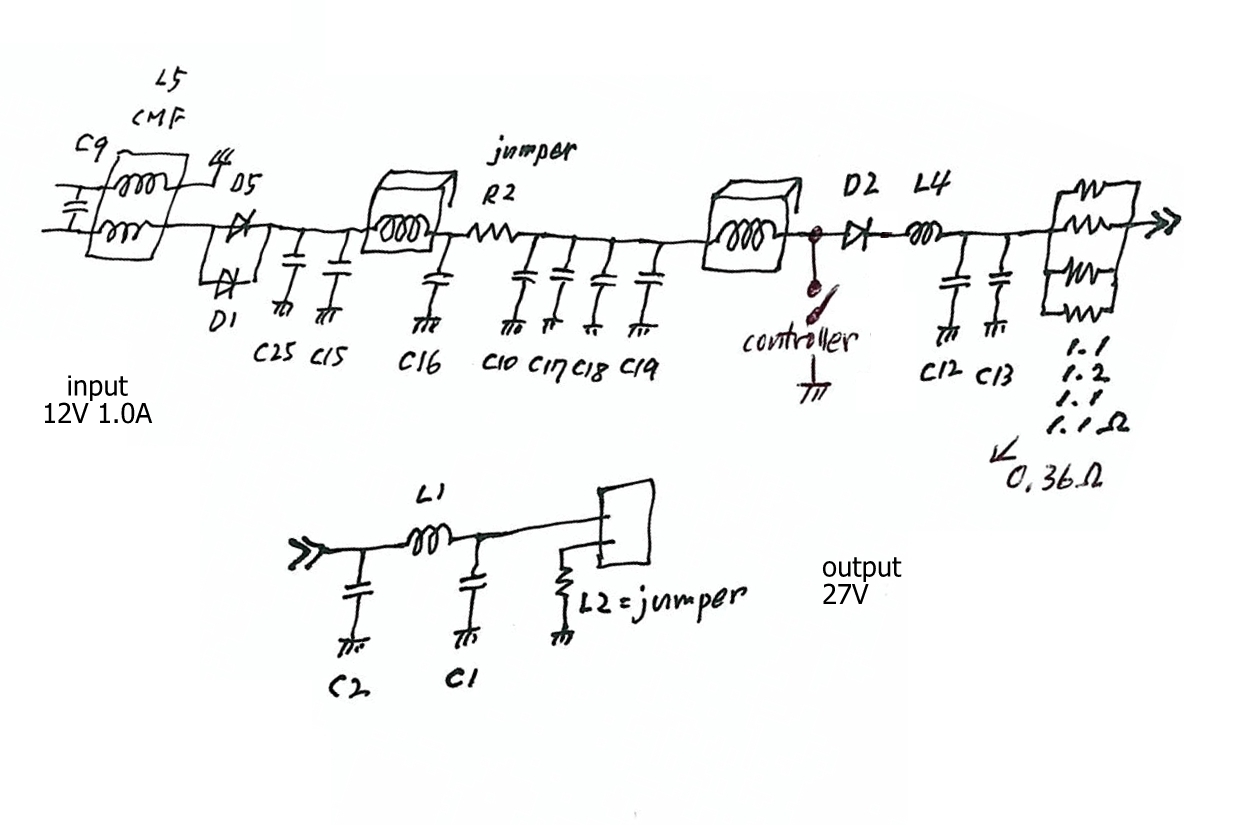 L5
CMF
C9
D5
D1
C25 C15
C16
jumper
R2
C10 C17 C18 C19
controller
D2 L4
C12 C13
1.1
1.2
1.1
1.1Ω
0.36Ω
input
12V 1.0A
L1
C2
C1
L2=jumper
output
27V